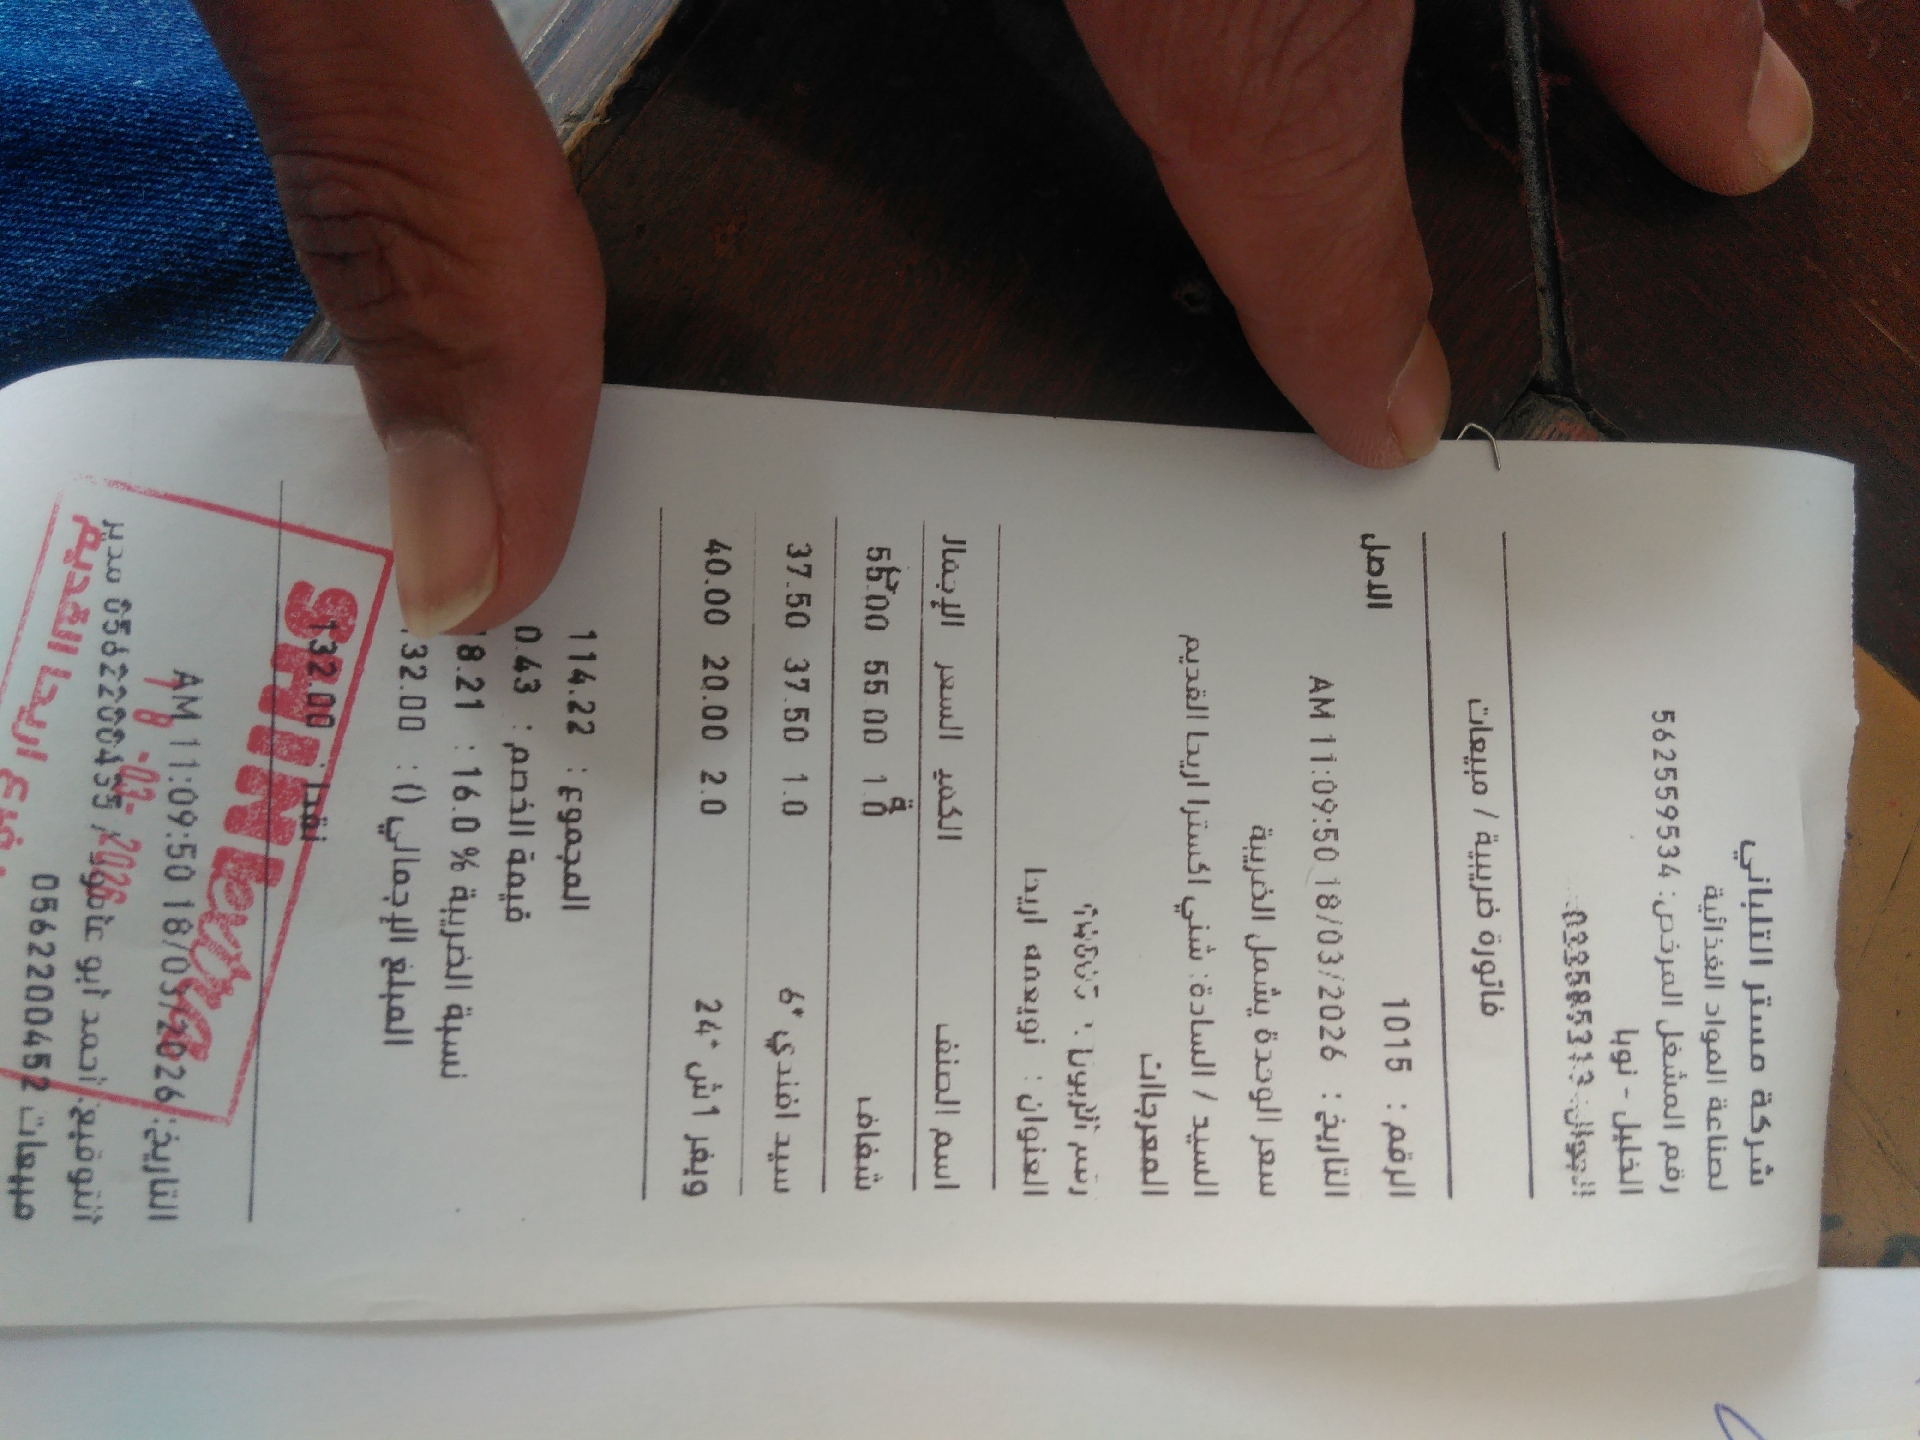 شركة مستر التلباني
لصناعة المواد الغذائية
رقم المشغل المرخص: 562559534
الخليل - نوبا
فاتورة ضريبية / مبيعات
الرقم : 1015 الاصل
التاريخ : 18/03/2026 11:09:50 AM
سعر الوحدة يشمل الضريبة
السيد / السادة: شني اكسترا اريحا القديم
المعرجات
العنوان : نويعمه اريحا
اسم الصنف الكمية السعر الإجمالي
شفاف 1.0 55.00 55.00
سيد افندي 6* 1.0 37.50 37.50
ويفر 1ش *24 2.0 20.00 40.00
المجموع : 114.22
قيمة الخصم : 0.43
نسبة الضريبة % 16.0 : 18.21
المبلغ الإجمالي () : 132.00
نقدا : 132.00
التاريخ: 18/03/2026 11:09:50 AM
التوقيع: احمد ابو عاشور / 0562200455 مدير
مبيعات 0562200452
SHINI extra
18 -03- 2026
فرع اريحا القديم